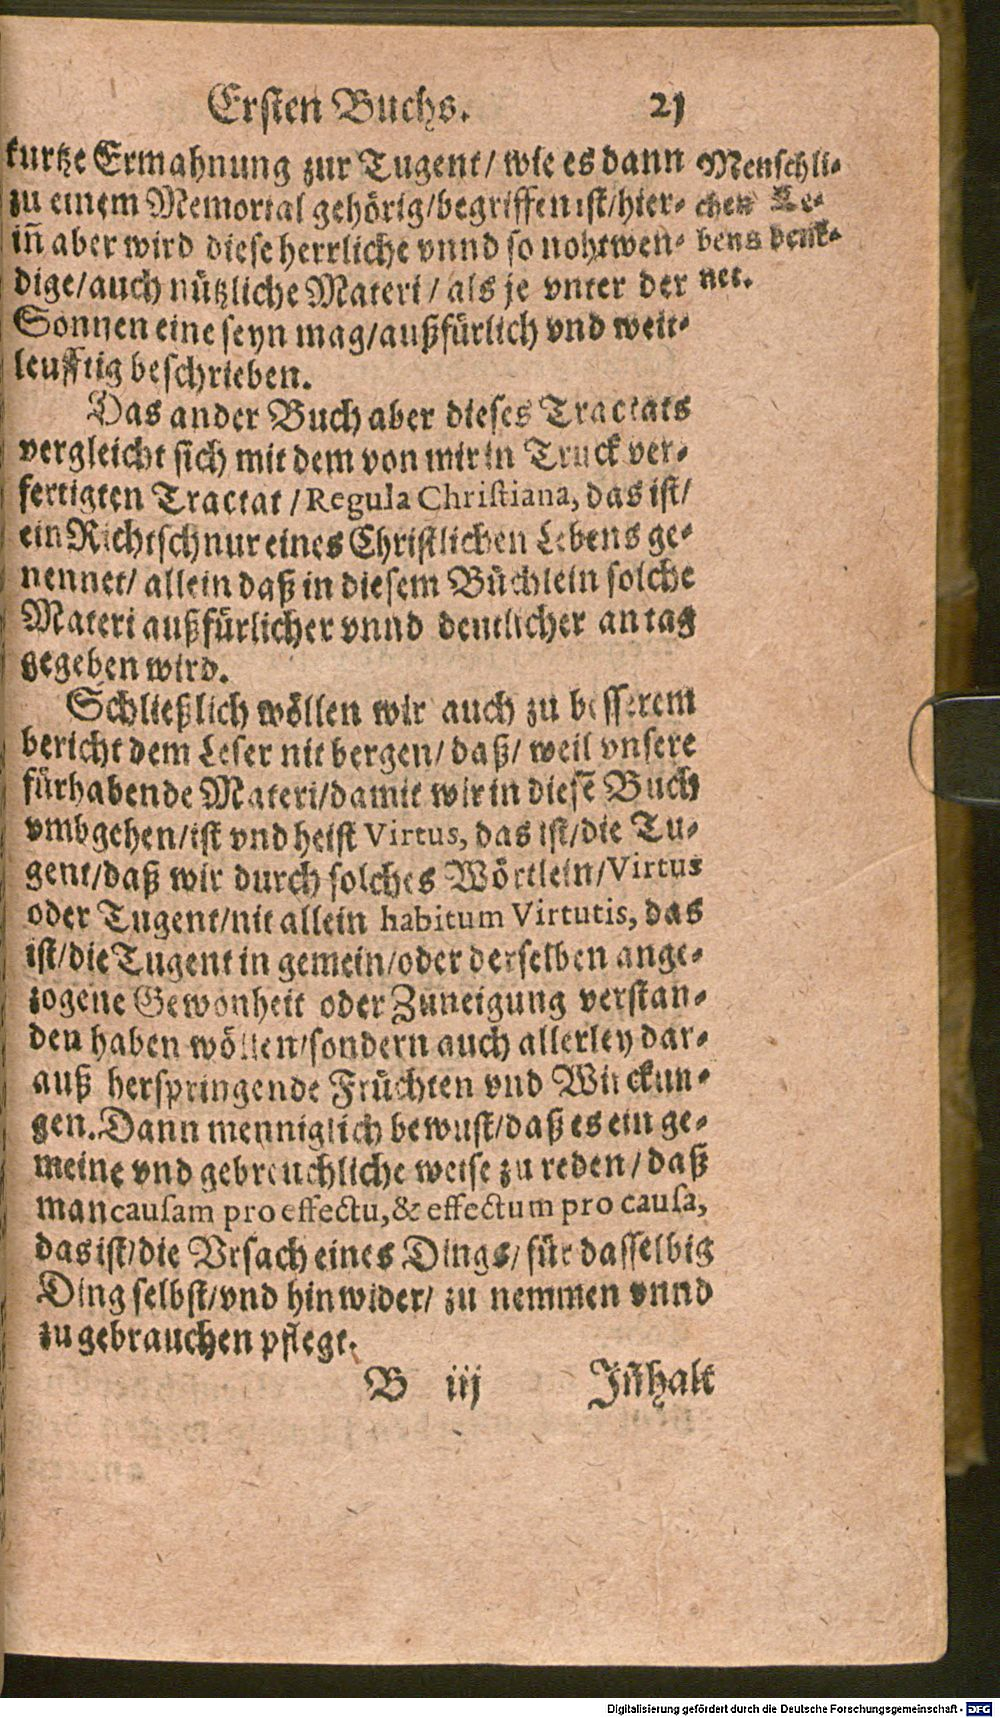 Ersten Buchs. 21
kurtze Ermahnung zur Tugent/ wie es dann
zu einem Memorial gehörig/begriffen ist/hier-
iñ aber wird diese herrliche vnnd so nohtwen-
dige/auch nützliche Materi/ als je vnter der
Sonnen eine seyn mag/außfürlich vnd weit-
leufftig beschrieben.
Menschli-
chen Le-
bens denk-
net.
Das ander Buch aber dieses Tractats
vergleicht sich mit dem von mir in Truck ver-
fertigten Tractat/Regula Christiana, das ist/
ein Richtschnur eines Christlichen Lebens ge-
nennet/ allein daß in diesem Büchlein solche
Materi außfürlicher vnnd deutlicher an tag
gegeben wird.
Schließlich wöllen wir auch zu besserem
bericht dem Leser nit bergen/ daß/ weil vnsere
fürhabende Materi/damit wir in diesẽ Buch
vmbgehen/ist vnd heist Virtus, das ist/die Tu-
gent/daß wir durch solches Wörtlein/Virtus
oder Tugent/nit allein habitum Virtutis, das
ist/die Tugent in gemein/oder derselben ange-
zogene Gewonheit oder Zuneigung verstan-
den haben wöllen/sondern auch allerley dar-
auß herspringende Früchten vnd Wirckun-
gen. Dann menniglich bewust/daß es ein ge-
meine vnd gebreuchliche weise zu reden/daß
man causam pro effectu, & effectum pro causa,
das ist/die Vrsach eines Dings/ für dasselbig
Ding selbst/vnd hinwider/ zu nemmen vnnd
zu gebrauchen pflegt.
B iij Jñhalt
Digitalisierung gefördert durch die Deutsche Forschungsgemeinschaft - DFG